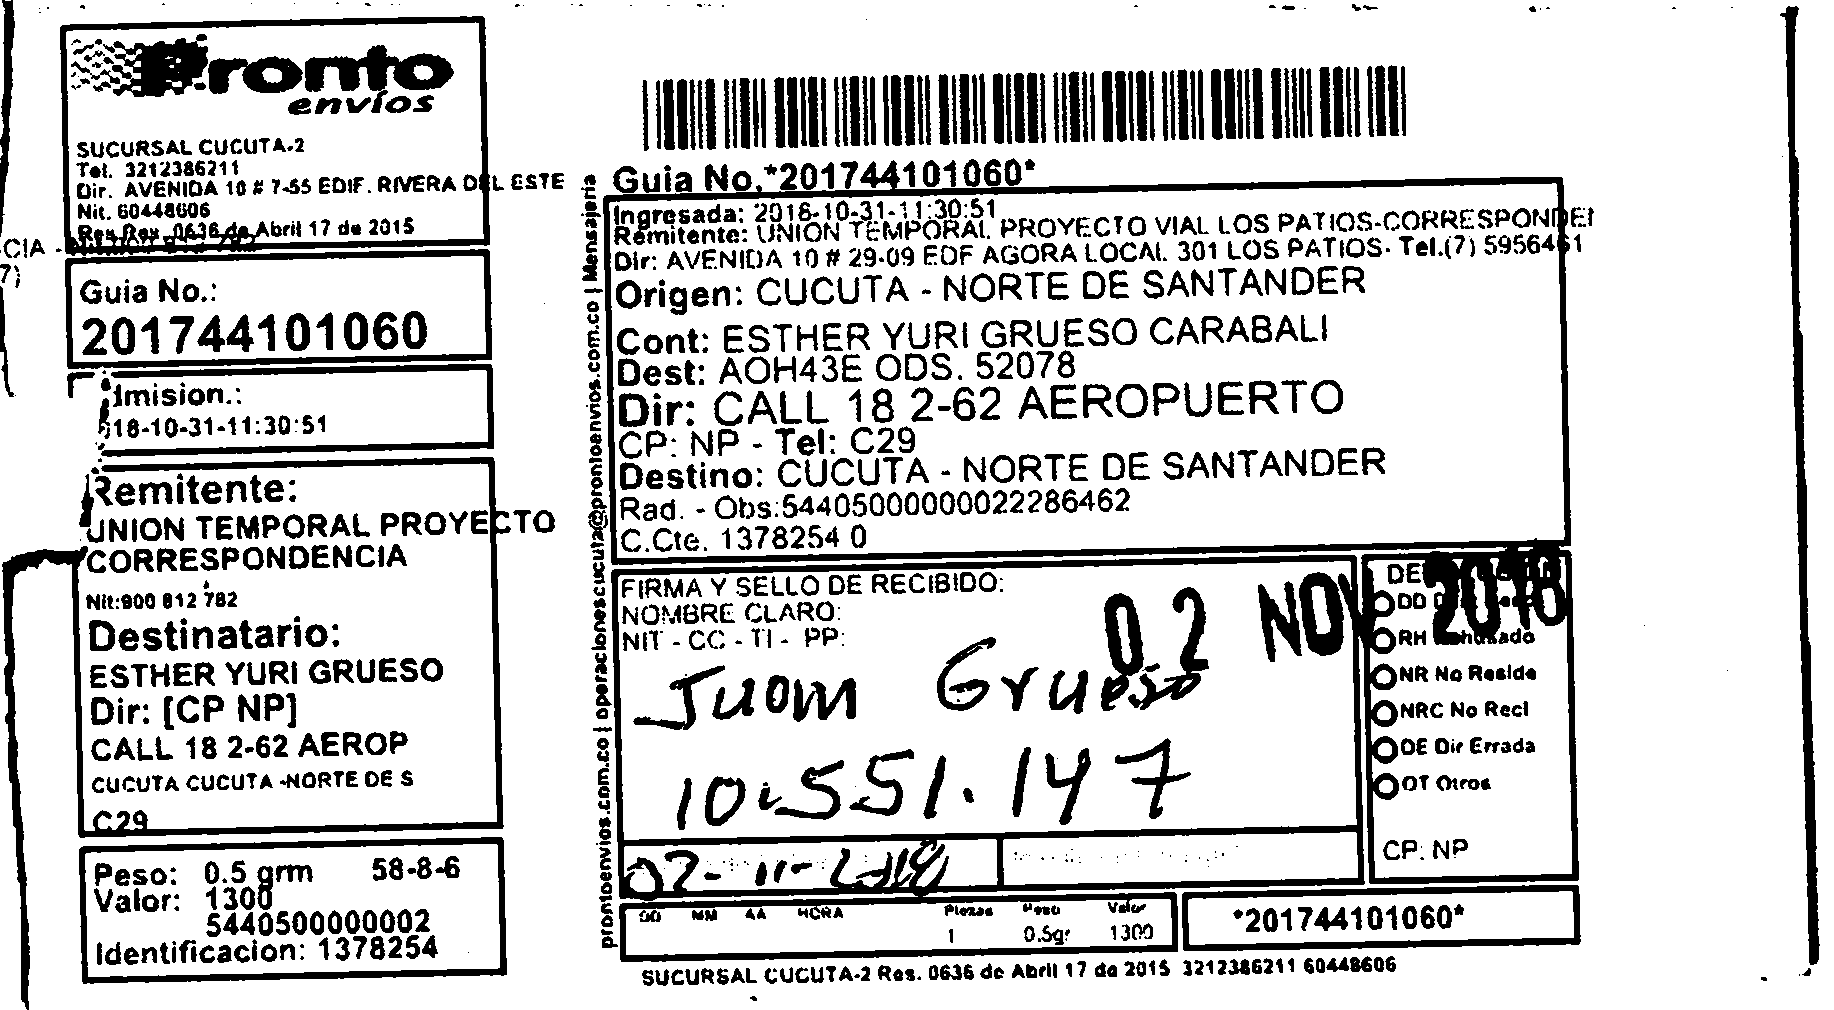 Pronto
envíos
SUCURSAL CUCUTA-2
Tel. 3212386211
Dir. AVENIDA 10 # 7-55 EDIF. RIVERA DEL ESTE
Nit. 60448606
Res 0636 de Abril 17 de 2015
CIA -
7)
Guia No.:
201744101060
Imision.:
18-10-31-11:30:51
Remitente:
UNION TEMPORAL PROYECTO
CORRESPONDENCIA
Nit:900 812 782
Destinatario:
ESTHER YURI GRUESO
Dir: [CP NP]
CALL 18 2-62 AEROP
CUCUTA CUCUTA -NORTE DE S
C29
Peso: 0.5 grm 58-8-6
Valor: 1300
5440500000002
Identificacion: 1378254
prontoenvios.com.co | operacionescucuta@prontoenvios.com.co | Mensajeria
Guia No.*201744101060*
Ingresada: 2018-10-31-11:30:51
Remitente: UNION TEMPORAL PROYECTO VIAL LOS PATIOS-CORRESPONDEI
Dir: AVENIDA 10 # 29-09 EDF AGORA LOCAL 301 LOS PATIOS- Tel.(7) 5956461
Origen: CUCUTA - NORTE DE SANTANDER
Cont: ESTHER YURI GRUESO CARABALI
Dest: AOH43E ODS. 52078
Dir: CALL 18 2-62 AEROPUERTO
CP: NP - Tel: C29
Destino: CUCUTA - NORTE DE SANTANDER
Rad. - Obs:54405000000022286462
C.Cte. 1378254 0
FIRMA Y SELLO DE RECIBIDO:
NOMBRE CLARO:
NIT - CC - TI - PP:
02 NOV 2018
Juan Grueso
10.551.147
02-11-2018
DD MM AA HORA Piezas Peso Valor
1 0.5gr 1300
DE
DD
RH Rehusado
NR No Reside
NRC No Recl
DE Dir Errada
OT Otros
CP: NP
*201744101060*
SUCURSAL CUCUTA-2 Res. 0636 de Abril 17 de 2015 3212386211 60448606